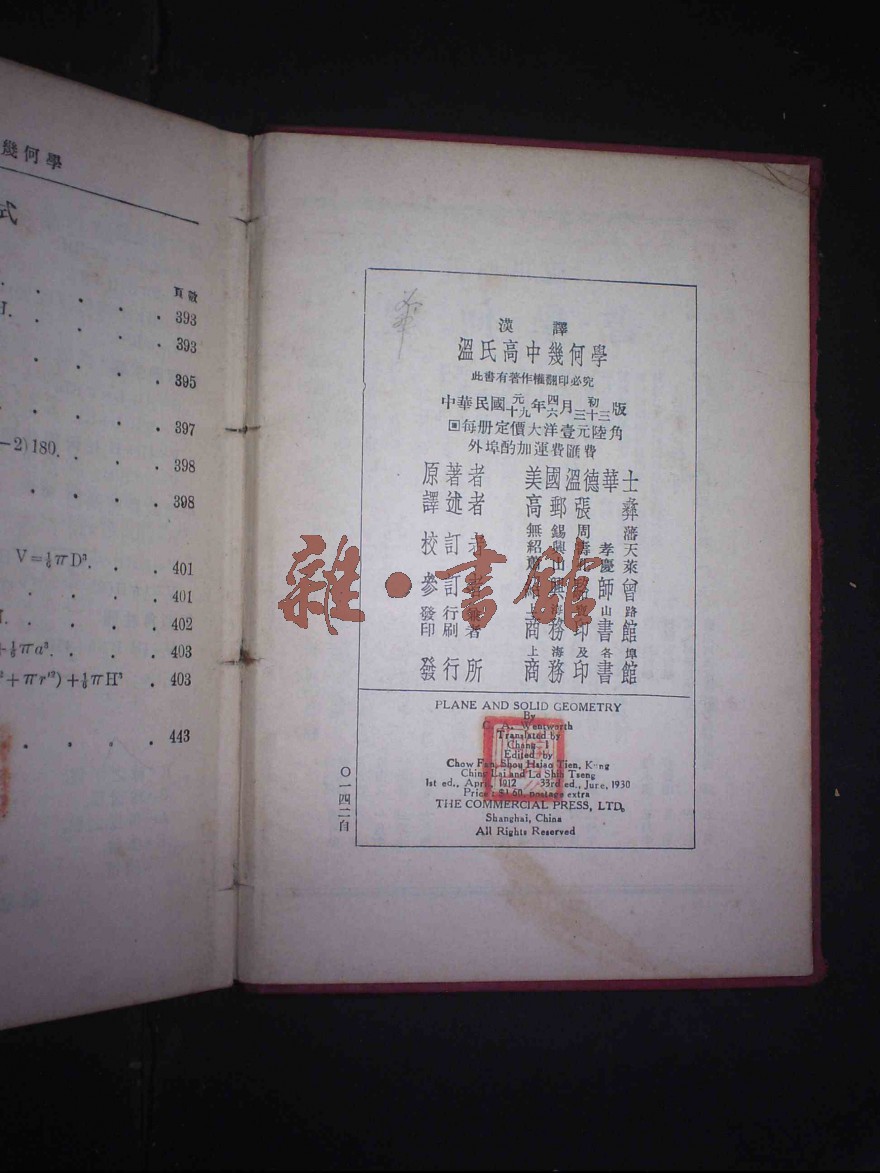 幾何學
式
頁數
393
393
395
397
-2)180. 398
398
V=⅙πD³. 401
401
402
+⅙πa³. 403
²+πr'²)+⅙πH³ 403
443
漢譯
溫氏高中幾何學
此書有著作權翻印必究
中華民國元年四月初版
十九年六月三十三版
回每册定價大洋壹元陸角
外埠酌加運費匯費
原著者 美國溫德華士
譯述者 高郵張彝
校訂者 無錫周藩
紹興壽孝天
慶萊
參訂者 師曾
發行兼印刷者 上海寶山路
商務印書館
發行所 上海及各埠
商務印書館
PLANE AND SOLID GEOMETRY
By
G. A. Wentworth
Translated by
Chang I
Edited by
Chow Fan, Shou Hsiao Tien, Kung
Ching Lai and Lo Shih Tseng
1st ed., April, 1912 33rd ed., June, 1930
Price: $1.60, postage extra
THE COMMERCIAL PRESS, LTD.
Shanghai, China
All Rights Reserved
〇一四二自
雜·書館